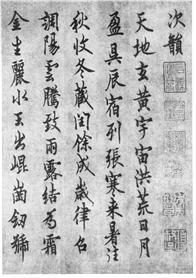 次韻
天地玄黃宇宙洪荒日月
盈昃辰宿列張寒来暑往
秋收冬藏閏餘成歲律召
調陽雲騰致雨露結為霜
金生麗水玉出崐崗劔號